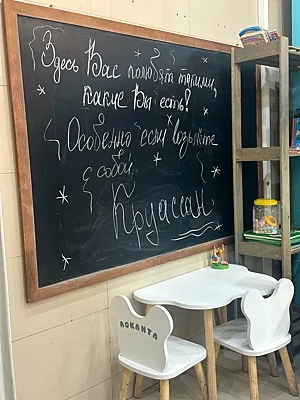 Здесь Вас полюбят такими,
какие Вы есть?
Особенно если возьмёте
с собой
Круассан
ЛОКАНТА